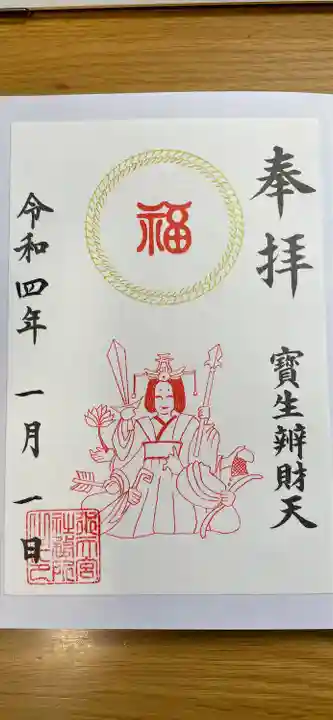 奉拝
寶生辨財天
福
令和四年 一月 一日